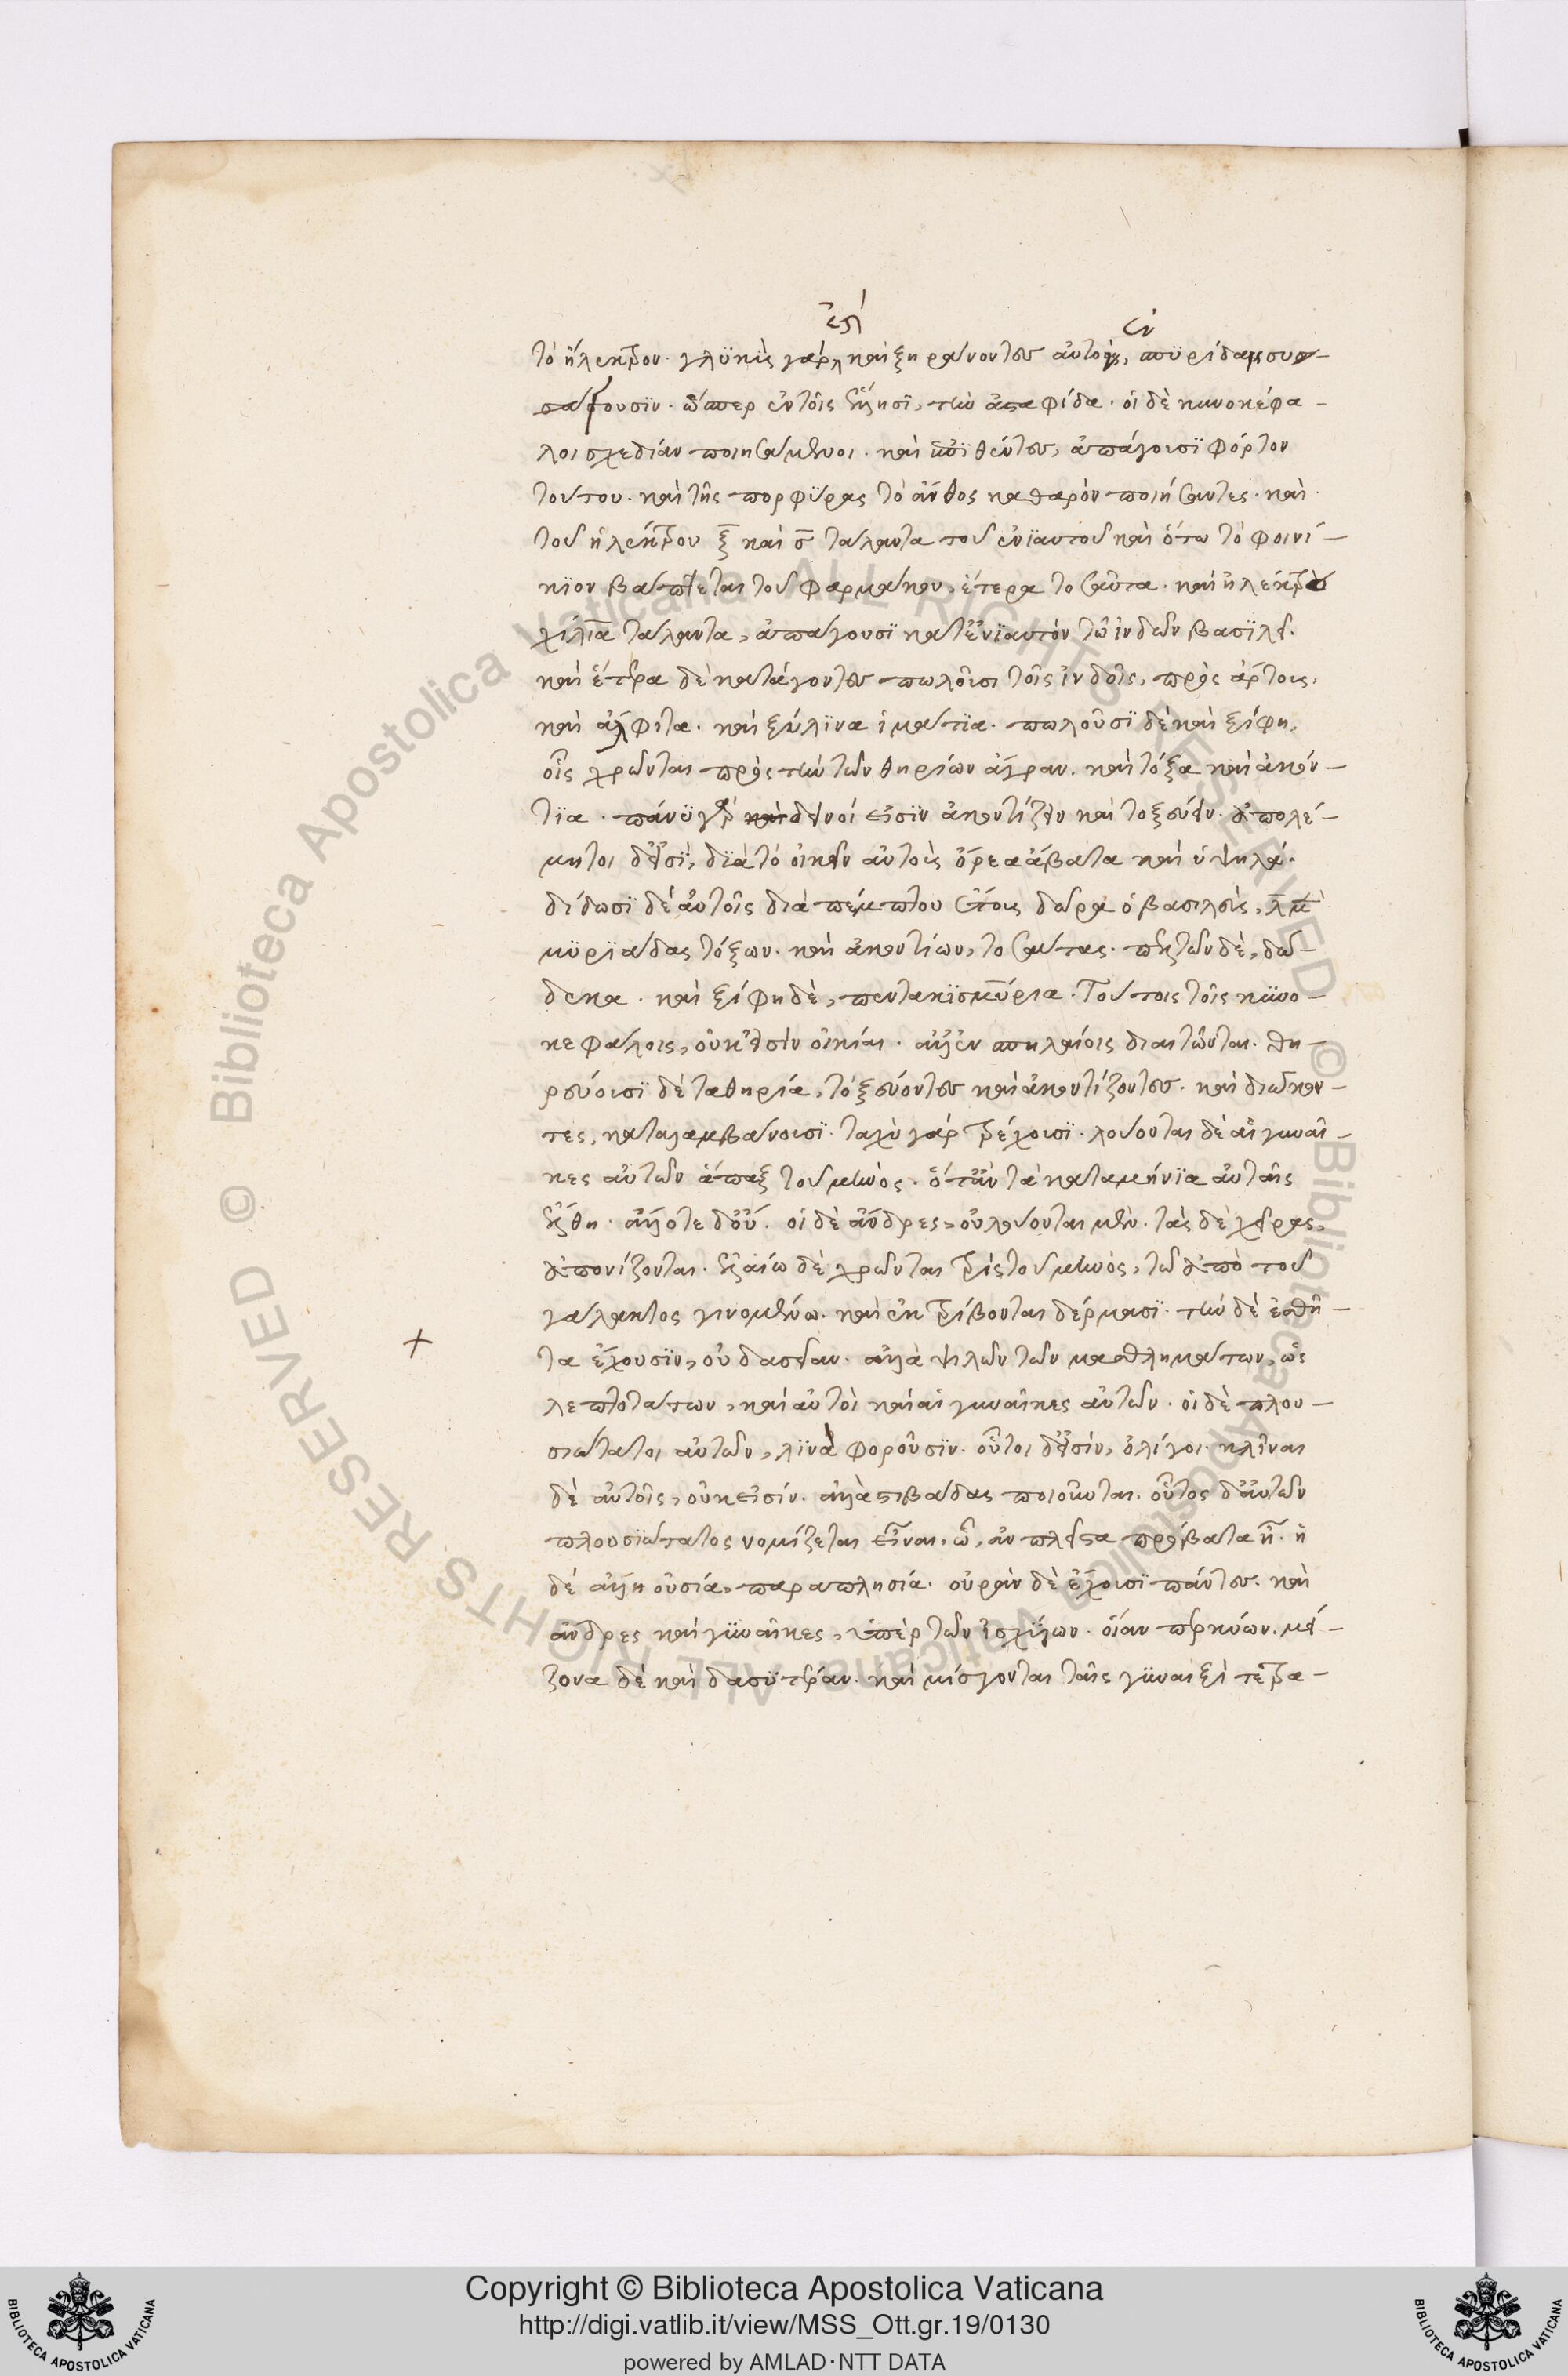 ἐστὶ
ἐν
τὸ ἤλεκτρον. γλυκὺς γάρ καὶ ξηραίνοντες αὐτοὺς, σπυρίδας συσ-
σάττουσϊν. ὥσπερ ἐν τοῖς ἕλλησϊ, τὴν ἀσταφίδα. οἱ δὲ κυνοκέφα-
λοι σχεδίαν ποιησάμενοι. καὶ ἐπϊθέντες, ἀπάγουσϊ φόρτον
τούτου. καὶ τῆς πορφύρας τὸ ἄνθος καθαρὸν ποιήσαντες. καὶ
τοῦ ἠλέκτρου ξ καὶ σ τάλαντα τοῦ ἐνϊαυτοῦ καὶ ὅτω τὸ φοινί-
κϊον βάπτεται τοῦ φαρμάκου, ἕτερα τοσαῦτα. καὶ ἠλέκτρου
χίλϊα τάλαντα, ἀπάγουσϊ κατ' ἐνϊαυτὸν τῶ ἰνδῶν βασϊλεῖ.
καὶ ἕτερα δὲ κατάγοντες πωλοῦσι τοῖς ἰνδοῖς, πρὸς ἄρτους,
καὶ ἄλφιτα. καὶ ξύλϊνα ἱμάτϊα. πωλοῦσϊ δὲ καὶ ξίφη,
οἷς χρῶνται πρὸς τὴν τῶν θηρίων ἄγραν. καὶ τόξα καὶ ἀκόν-
τϊα. πάνϋ γὰρ καὶ δεινοί εἰσϊν ἀκοντίζειν καὶ τοξεύειν. ἀπολέ-
μητοι δ' εἰσϊ, δϊὰ τὸ οἰκεῖν αὐτοὺς ὄρεα ἄβατα καὶ ὑψηλά.
δίδωσϊ δὲ αὐτοῖς διὰ πέμπτου ἔτους δῶρα ὁ βασιλεὺς, λ μὲν
μϋρϊάδας τόξων. καὶ ἀκοντίων, τοσαύτας. πελτῶν δὲ, δώ-
δεκα. καὶ ξίφη δὲ, πεντακϊσμύρια. Τούτοις τοῖς κϋνο-
κεφάλοις, οὐκ εἰσὶν οἰκίαι. ἀλλ' ἐν σπηλαίοις διαιτῶνται. θη-
ρεύουσϊ δὲ τὰ θηρία, τοξεύοντες καὶ ἀκοντίζοντες. καὶ διώκον-
τες, καταλαμβάνουσϊ. ταχὺ γάρ τρέχουσϊ. λούονται δὲ αἱ γυναῖ-
κες αὐτῶν ἅπαξ τοῦ μηνὸς. ὅτ' ἂν τὰ καταμήνϊα αὐταῖς
ἔλθη. ἄλλοτε δ' οὔ. οἱ δὲ ἄνδρες, οὐ λούονται μὲν. τὰς δὲ χεῖρας,
ἀπονίζονται. ἐλαίω δὲ χρῶνται τρὶς τοῦ μηνὸς, τῶ ἀπὸ τοῦ
γάλακτος γινομένω. καὶ ἐκτρίβονται δέρμασϊ. τὴν δὲ ἐσθῆ-
τα ἔχουσϊν, οὐ δασεῖαν. ἀλλὰ ψιλῶν τῶν μασθλημάτων, ὡς
λεπτοτάτων, καὶ αὐτοὶ καὶ αἱ γυναῖκες αὐτῶν. οἱ δὲ πλου-
σιώτατοι αὐτῶν, λϊνᾶ φοροῦσϊν. οὗτοι δ' εἰσίν, ὀλίγοι. κλῖναι
δὲ αὐτοῖς, οὐκ εἰσίν. ἀλλὰ στιβάδας ποιοῦνται. οὗτος δ' αὐτῶν
πλουσϊώτατος νομίζεται εἶναι. ὧ, ἂν πλεῖστα πρόβατα ἦ. ἡ
δὲ ἄλλη οὐσία, παραπλησία. οὐρὰν δὲ ἔχουσϊ πάντες. καὶ
ἄνδρες καὶ γϋναῖκες, ὑπὲρ τῶν ἰσχϊων. οἵαν περ κύων. μεί-
ζονα δὲ καὶ δασϋτέραν. καὶ μίσγονται ταῖς γϋναιξὶ τετρα-
Copyright © Biblioteca Apostolica Vaticana
http://digi.vatlib.it/view/MSS_Ott.gr.19/0130
powered by AMLAD·NTT DATA